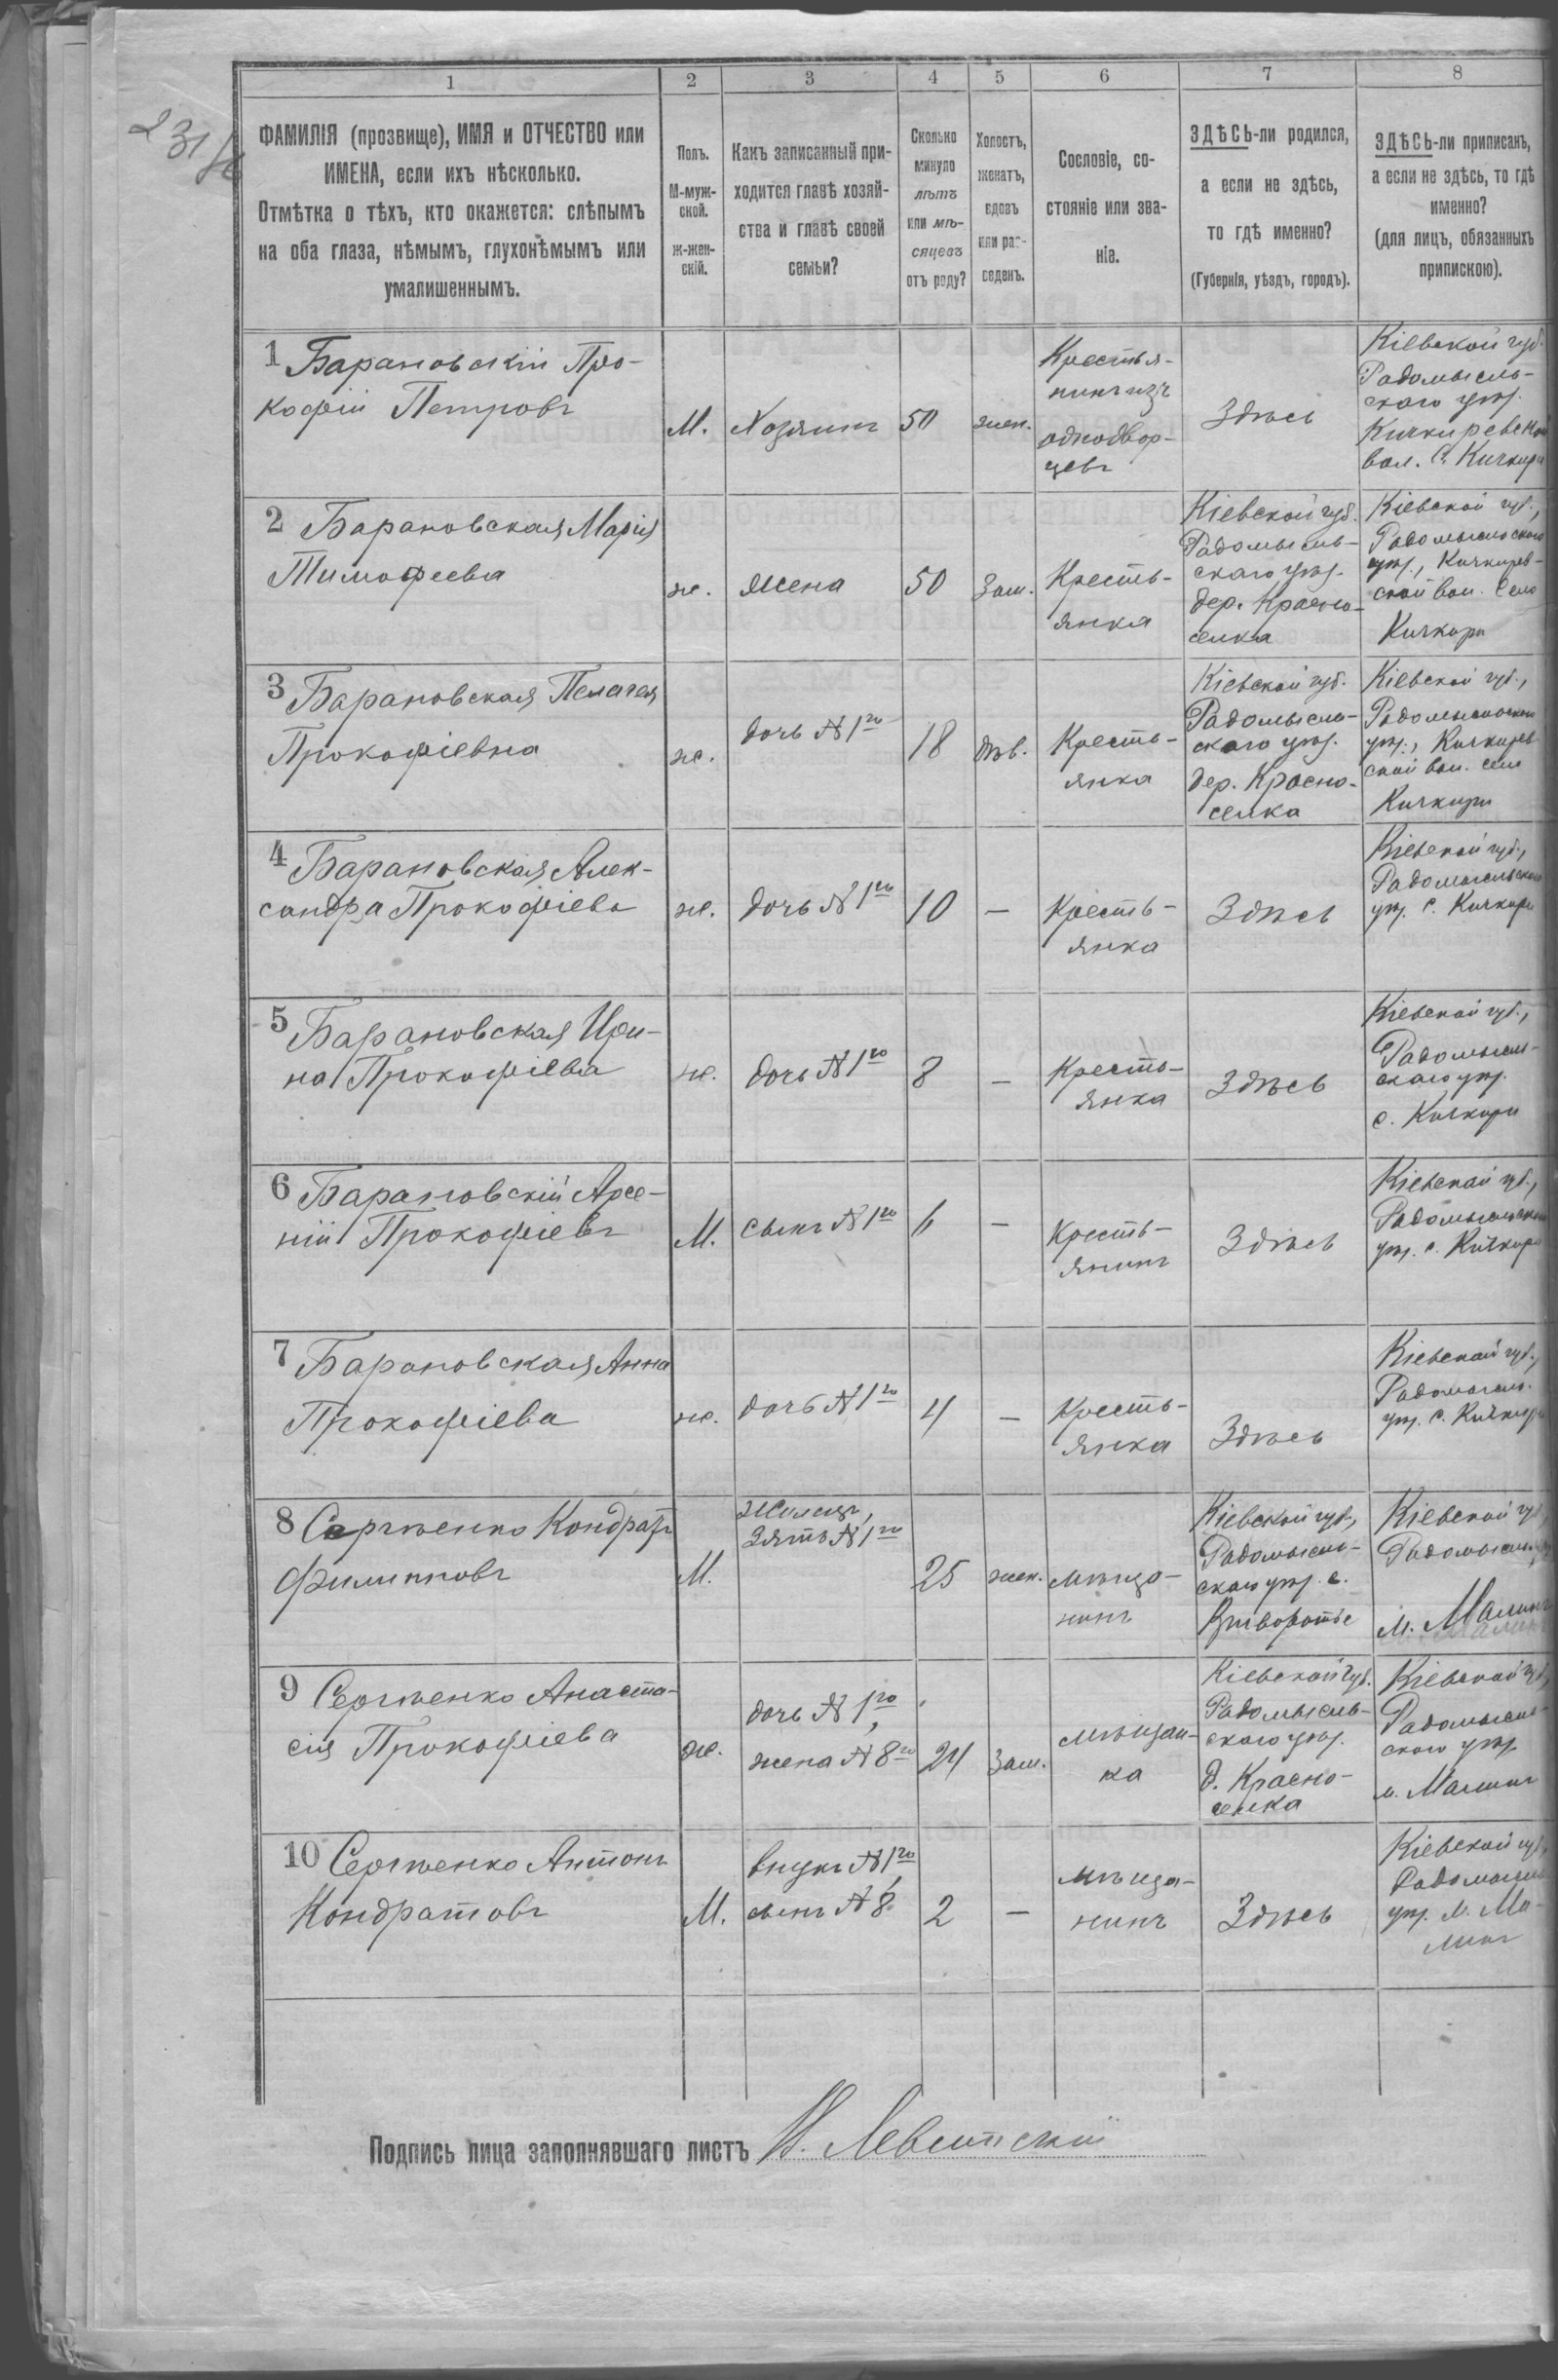 1 2 3 4 5 6 7 8
ФАМИЛІЯ (прозвище), ИМЯ и ОТЧЕСТВО или
ИМЕНА, если ихъ нѣсколько.
Отмѣтка о тѣхъ, кто окажется: слѣпымъ
на оба глаза, нѣмымъ, глухонѣмымъ или
умалишеннымъ.
Полъ.
М-муж-
ской.
ж-жен-
скій.
Какъ записанный при-
ходится главѣ хозяй-
ства и главѣ своей
семьи?
Сколько
минуло
лѣтъ
или мѣ-
сяцевъ
отъ роду?
Холостъ,
женатъ,
вдовъ
или раз-
веденъ.
Сословіе, со-
стояніе или зва-
ніе.
ЗДѢСЬ-ли родился,
а если не здѣсь,
то гдѣ именно?
(Губернія, уѣздъ, городъ).
ЗДѢСЬ-ли приписанъ,
а если не здѣсь, то гдѣ
именно?
(для лицъ, обязанныхъ
припискою).
1 Барановскій Про-
кофій Петровъ
М.
Хозяинъ
50
жен.
Крестья-
нинъ изъ
однодвор-
цевъ
Здѣсь
Кіевской губ.
Радомысль-
скаго уѣз.
Кичкиревской
вол. с. Кичкири
2 Барановская Марія
Тимофеева
ж.
жена
50
Зам.
Кресть-
янка
Кіевской губ.
Радомысль-
скаго уѣз.
дер. Красно-
селка
Кіевской губ.,
Радомысльскаго
уѣз., Кичкирев-
ской вол. село
Кичкири
3 Барановская Пелагея
Прокофіевна
ж.
дочь №1го
18
дѣв.
Кресть-
янка
Кіевской губ.
Радомысль-
скаго уѣз.
дер. Красно-
селка
Кіевской губ.,
Радомысльской
уѣз., Кичкирев
ской вол. село
Кичкири
4 Барановская Алек-
сандра Прокофіева
ж.
дочь №1го
10
—
Кресть-
янка
Здѣсь
Кіевской губ.,
Радомысльскаго
уѣз. с. Кичкири
5 Барановская Ири-
на Прокофіева
ж.
дочь №1го
8
—
Кресть-
янка
Здѣсь
Кіевской губ.,
Радомысль-
скаго уѣз.
с. Кичкири
6 Барановскій Арсе-
ній Прокофіевъ
М.
сынъ №1го
6
—
Кресть-
янинъ
Здѣсь
Кіевской губ.,
Радомысльскаго
уѣз. с. Кичкири
7 Барановская Анна
Прокофіева
ж.
дочь №1го
4
—
Кресть-
янка
Здѣсь
Кіевской губ.,
Радомысль.
уѣз. с. Кичкири
8 Сергѣенко Кондратъ
Филипповъ
М.
Жилецъ,
Зять №1го
25
жен.
мѣща-
нинъ
Кіевской губ.,
Радомысль-
скаго уѣз. с.
Вриворотье
Кіевской губ.,
Радомысль
м. Малинъ
9 Сергѣенко Анаста-
сія Прокофіева
ж.
дочь №1го,
жена №8го
24
Зам.
мѣщан-
ка
Кіевской губ.
Радомысль-
скаго уѣз.
д. Красно-
селка
Кіевской губ,
Радомысль-
скаго уѣз
м. Малинъ
10 Сергѣенко Антонъ
Кондратовъ
М.
внукъ №1го,
сынъ №8
2
—
мѣща-
нинъ
Здѣсь
Кіевской губ,
Радомысль
уѣз. м. Ма-
линъ
Подпись лица заполнявшаго листъ